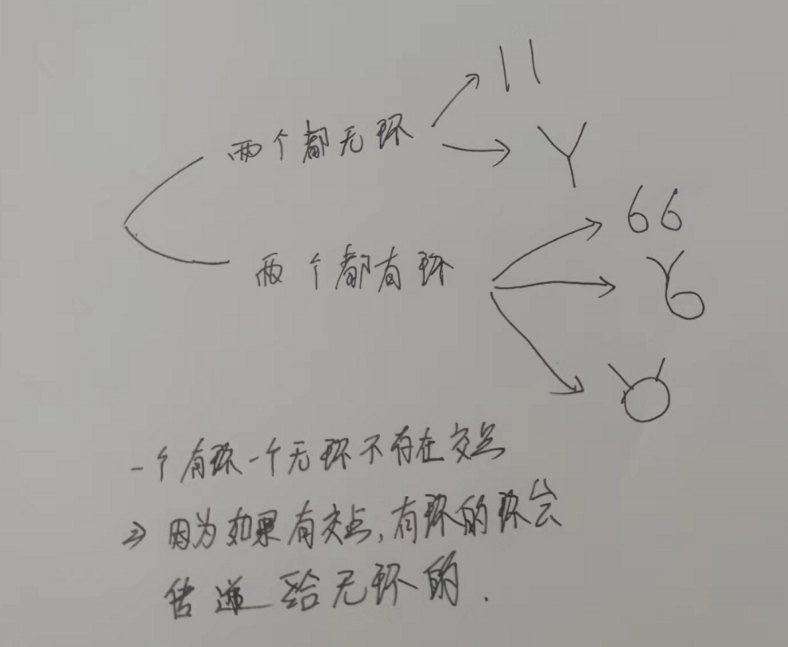 两个都无环
11
Y
两个都有环
66
一个有环一个无环不存在交点
⇒ 因为如果有交点,有环的环会
传递给无环的.